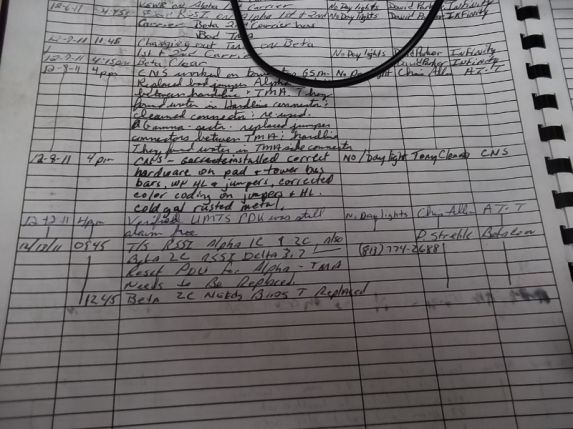 12-6-11 work on Alpha Carrier No Day lights David Parker Infinity
4:45p RSSI on Alpha 1st + 2nd No Day lights David Infinity
Carrier Beta 2nd Carrier has
Bad
11:45 Changing out TMA on Beta
1st + 2nd Carrier No Day lights Infinity
12-7-11 4:45pm Beta Clear David Parker Infinity
12-8-11 4pm CNS worked on tower to GSM No Day light Chris All.. A.T.T
Replaced bad jumper Alpha
between hardline + TMA. Then
found water in Hardline connector;
cleaned connector. re used.
Gamma - sector. replaced jumper
connectors between TMA & hardline
Then found water in TMA side connects
12-9-11 4pm CNS - installed correct No/Day light Tony CNS
hardware on pad + tower bus
bars, w/ HL & jumpers, corrected
color coding on jumpers & HL.
cold gal rusted metal,
12-12-11 4pm Verified UMTS PDU was still No Day lights Chris Allen A.T.T
alarm free
12/13/11 0845 T/S RSSI Alpha 1C & 2C Also D. Streble Betacom
Beta 2C RSSI Delta 3.7 (813) 774-2688
Reset PDU for Alpha - TMA
Needs to Be Replaced
1245 Beta 2C Needs Bias T Replaced